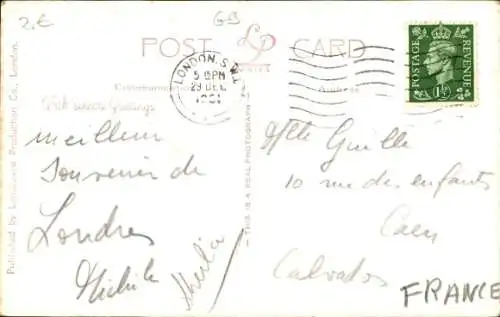 2.€
GB
POST CARD
LP
LONDON, S.W.1
5 15 PM
29 DEC
1951
POSTAGE
REVENUE
1½D
With warm Greetings
Communication
Address
meilleur
souvenir de
Londres
Michèle
Sheila
Mlle Guille
10 rue des enfants
Caen
Calvados
FRANCE
Published by Lansdowne Production Co., London.
THIS IS A REAL PHOTOGRAPH